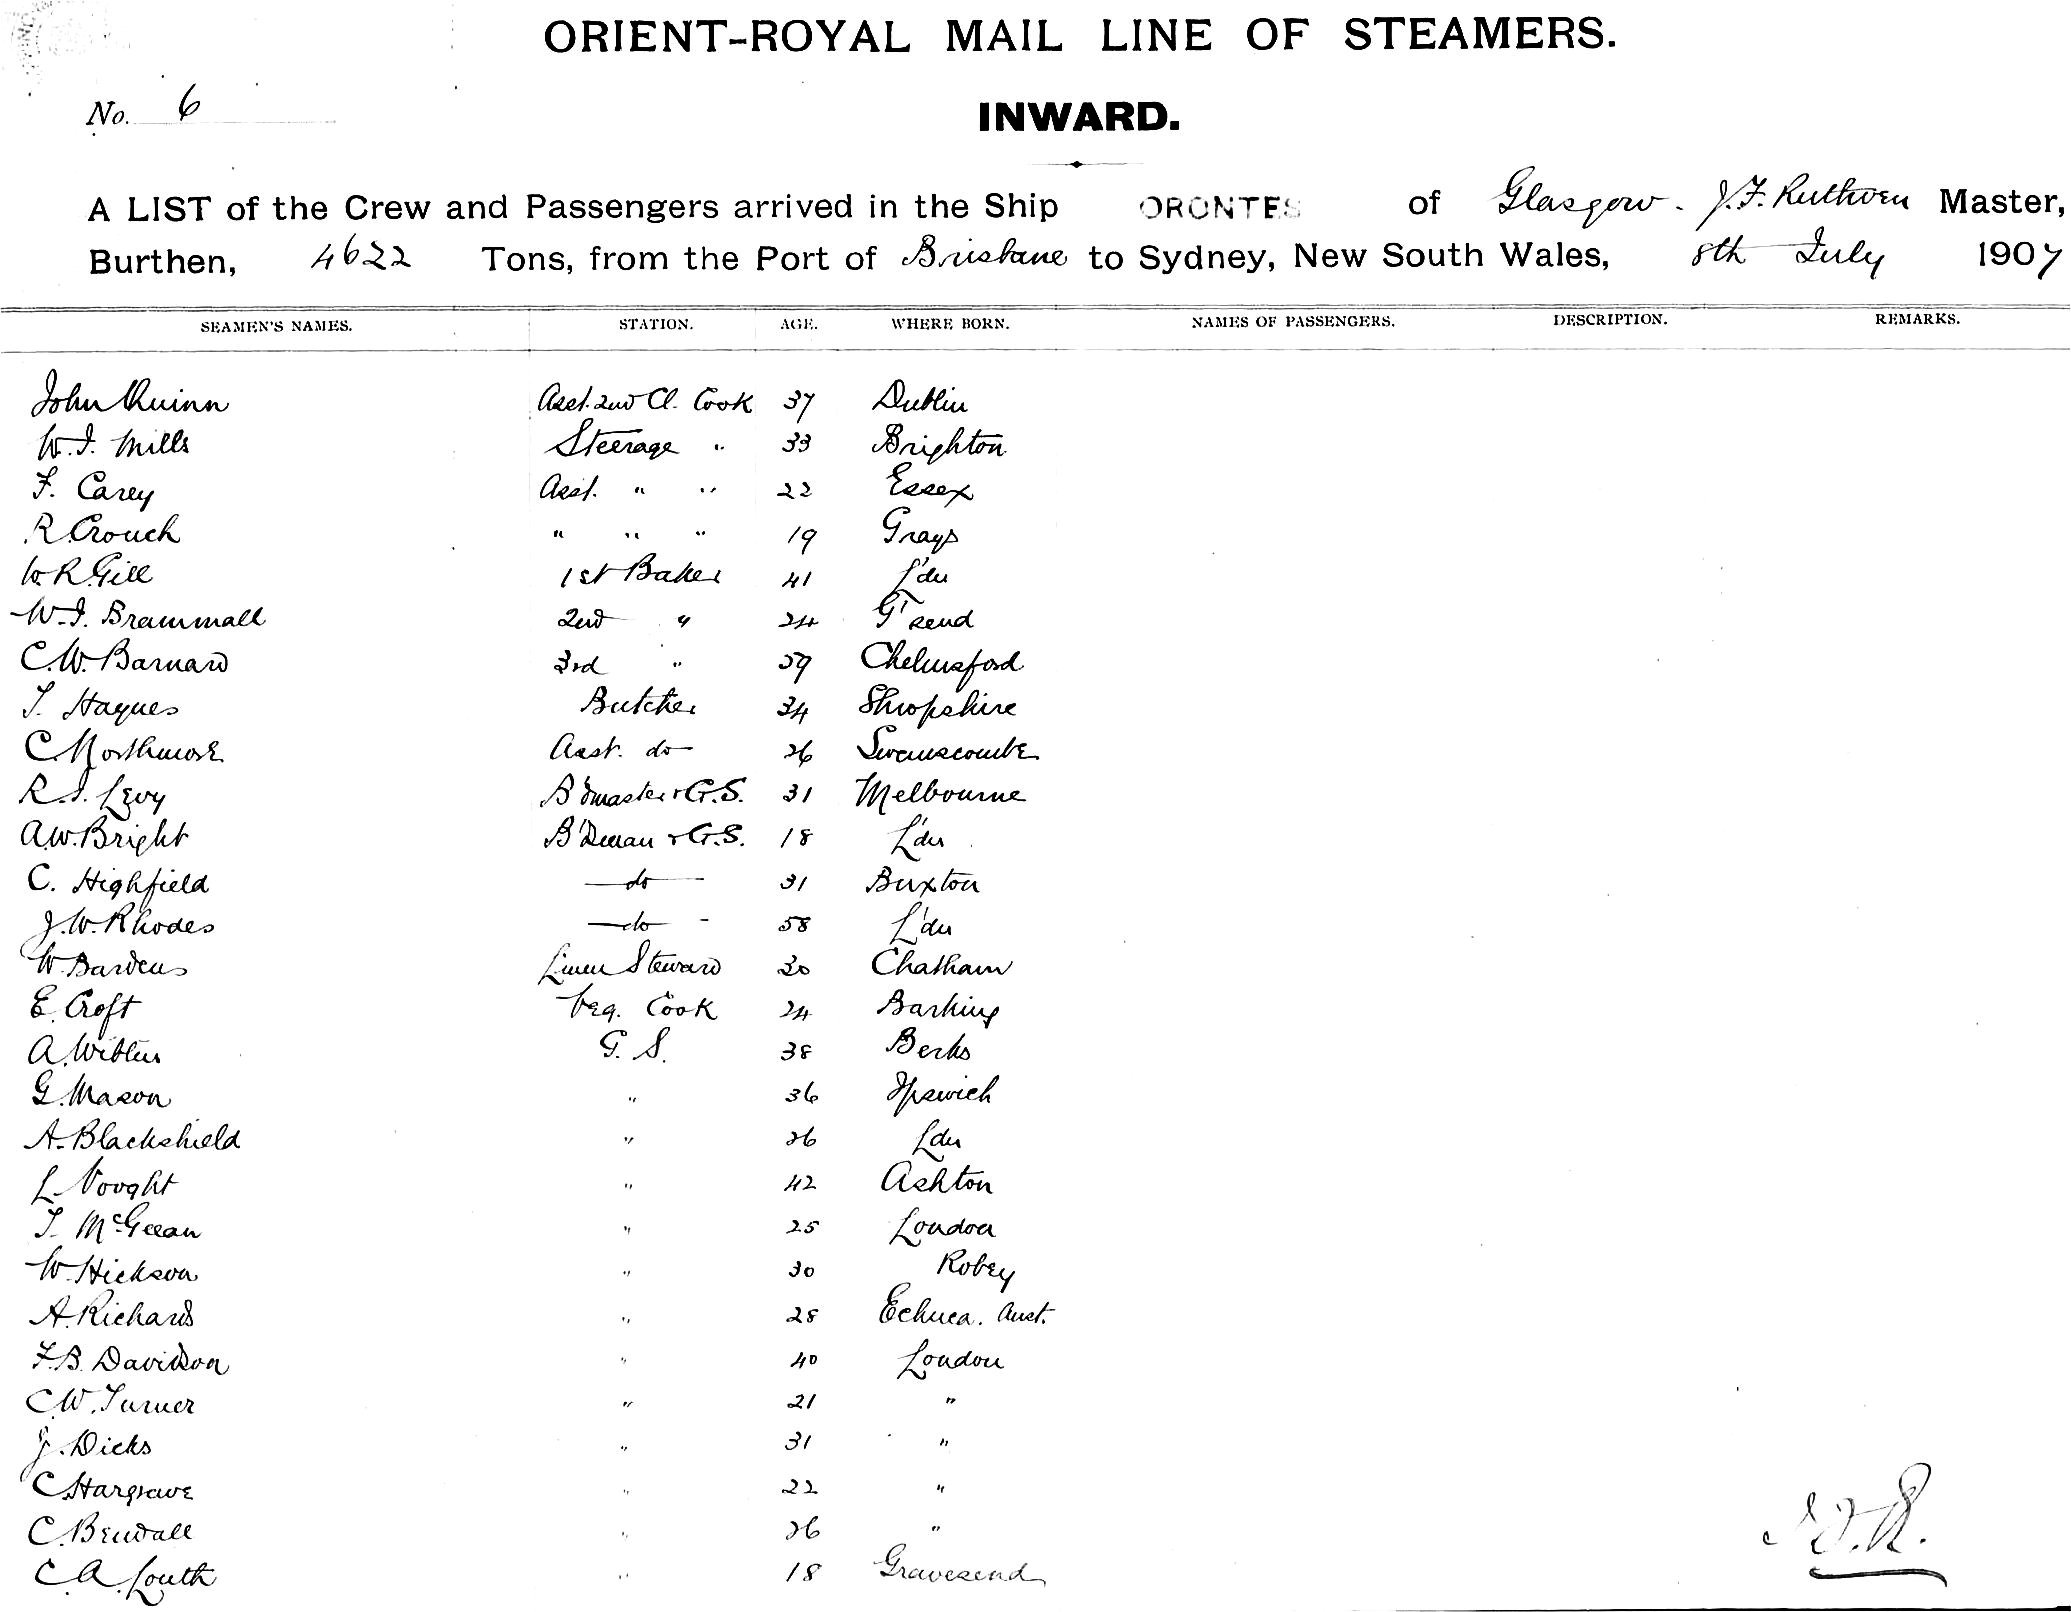 ORIENT-ROYAL MAIL LINE OF STEAMERS.
No. 6
INWARD.
A LIST of the Crew and Passengers arrived in the Ship ORONTES of Glasgow. J.F. Ruthven Master,
Burthen, 4622 Tons, from the Port of Brisbane to Sydney, New South Wales, 8th July 1907
SEAMEN'S NAMES. STATION. AGE. WHERE BORN. NAMES OF PASSENGERS. DESCRIPTION. REMARKS.
John Quinn Asst. 2nd Cl. Cook 37 Dublin
W.J. Mills Steerage " 33 Brighton
F. Carey Asst. " " 22 Essex
R. Crouch " " " 19 Grays
W.R. Gill 1st Baker 41 L'dn
W.J. Brammall 2nd " 24 G'send
C.W. Barnard 3rd " 59 Chelmsford
T. Haynes Butcher 34 Shropshire
C. Northmore Asst. do 26 Swanscombe
R.J. Levy B'dmaster & G.S. 31 Melbourne
A.W. Bright B'dman & G.S. 18 L'dn
C. Highfield do 31 Buxton
J.W. Rhodes do 58 L'dn
W. Bardens Linen Steward 30 Chatham
E. Croft Veg. Cook 24 Barking
A. G. S. 38 Berks
G. Mason " 36 Ipswich
A. Blackshield " 26 Ldn
L. Vooght " 42 Ashton
T. McGeean " 25 London
W. Hickson " 30 Robey
A. Richards " 28 Echuca. Aust.
F.B. Davidson " 40 London
C.W. Turner " 21 "
J. Dicks " 31 "
C. Hargrave " 22 "
C. Bendall " 26 "
C.A. Louth " 18 Gravesend
J.F.R.